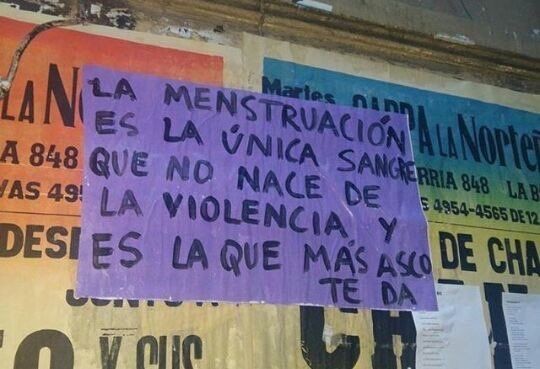 LA MENSTRUACIÓN
ES LA ÚNICA SANGRE
QUE NO NACE DE
LA VIOLENCIA Y
ES LA QUE MÁS ASCO
TE DA
LA
A 848
VAS
Martes
A LA Norteñ
RRIA 848 LA B
4954-4565 DE 12
DE CHA
Y SUS